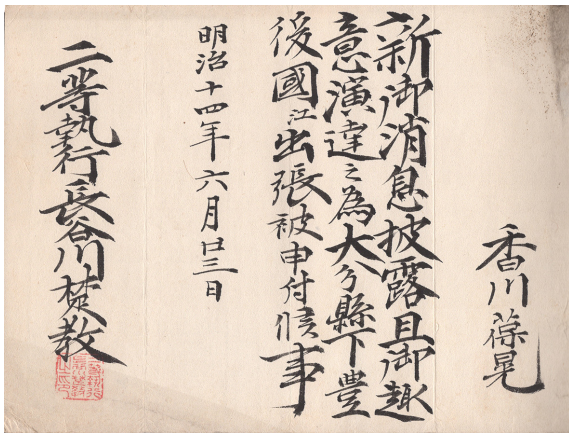 香川葆晃
新御消息披露且御趣
意演達之為大分縣下豊
後國江出張被申付候事
明治十四年六月廿三日
二等執行長谷川楚教